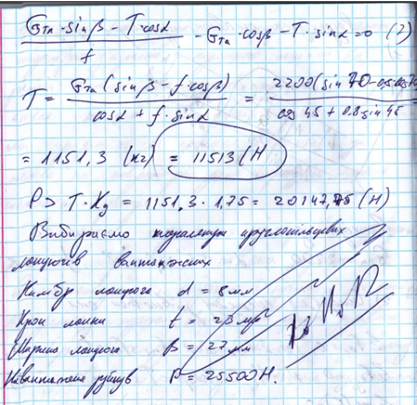 (Gта · sinβ − T·cosα) / f − Gта · cosβ − T · sinα = 0 (2)
T = Gта (sinβ − f·cosβ) / (cosα + f·sinα) = 2200(sin 70 − / cos 45 + 0.8 sin 45
= 1151,3 (кг) = 11513 (Н
P > T · Kg = 1151,3 · 1,75 = 20147,75 (Н)
Вибираємо
ланцюгів вантажних
Калибр ланцюга d = 8 мм
Крок ланки t = 23 мм
Ширина ланцюга B = 27 мм
Навантаження P = 25500 Н.